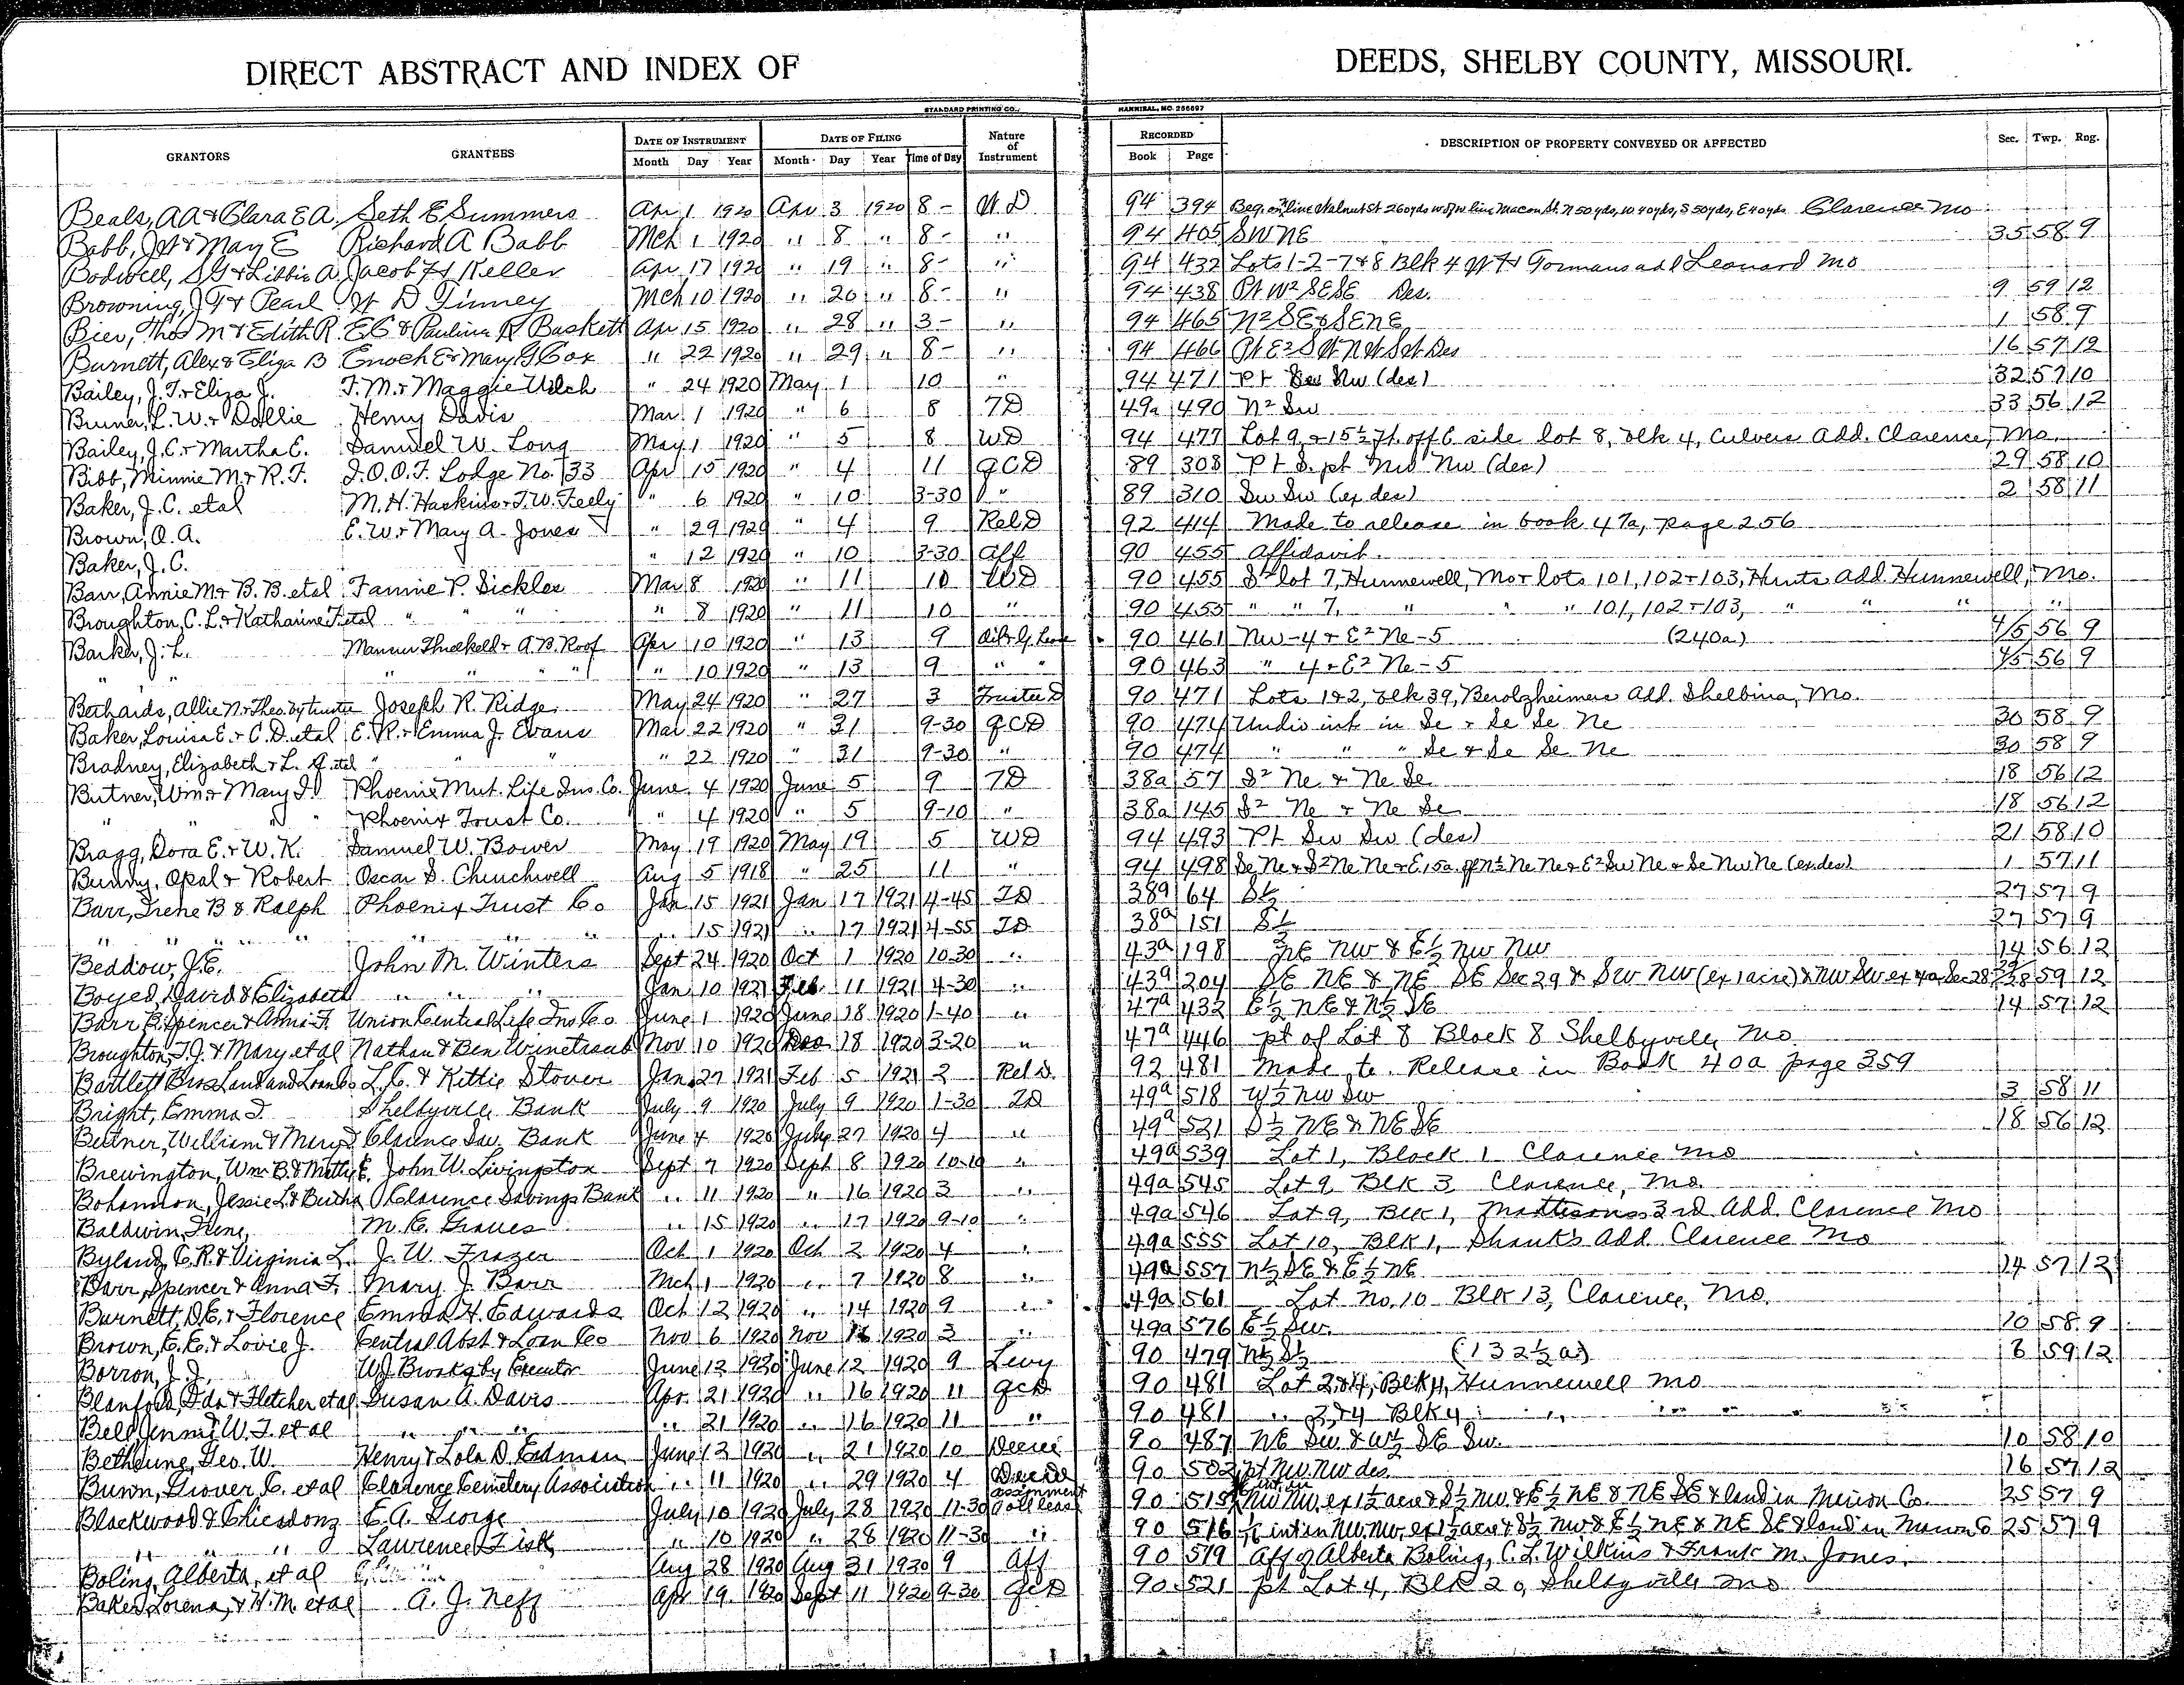 DIRECT ABSTRACT AND INDEX OF DEEDS, SHELBY COUNTY, MISSOURI.
STANDARD PRINTING CO., HANNIBAL, MO. 256697
GRANTORS GRANTEES DATE OF INSTRUMENT DATE OF FILING Nature of Instrument RECORDED DESCRIPTION OF PROPERTY CONVEYED OR AFFECTED Sec. Twp. Rng.
Month Day Year Month Day Year Time of Day Book Page
Beals, AA & Clara E A. Seth E Summers Apr 1 1920 Apr 3 1920 8- WD 94 394 Beg. on line Walnut St 260yds w of w line Macon St. N 50 yds, W 40yds, S 50yds, E 40yds Clarence Mo
Babb, JW & May E Richard A Babb Mch 1 1920 " 8 " 8- " 94 405 SWNE 35 58 9
Bodwell, SG & Libbie A. Jacob H Keller Apr 17 1920 " 19 " 8- " 94 432 Lots 1-2-7&8 Blk 4 WH Gormans add Leonard Mo
Browning, J G & Pearl W D Finney Mch 10 1920 " 20 " 8- " 94 438 Pt W2 SESE Des. 9 59 12
Bier, Thos M & Edith R. E C & Paulina R Baskett Apr 15 1920 " 28 " 3- " 94 465 N2SE&SENE 1 58 9
Burnett, Alex & Eliza B Enoch E & Mary G Cox " 22 1920 " 29 " 8- " 94 466 Pt E2 SW NW Des 16 57 12
Bailey, J. T. & Eliza J. F. M. & Maggie Uilch " 24 1920 May 1 10 " 94 471 Pt Sw Nw (des) 32 57 10
Bruner, L. W. & Dollie Henry Davis Mar. 1 1920 " 6 8 TD 49a 490 N2 Sw 33 56 12
Bailey, J. C. & Martha E. Samuel W. Long May 1 1920 " 5 8 WD 94 477 Lot 9, & 15½ ft. off E side lot 8, blk 4, Culvers Add. Clarence, Mo.
Bibb, Minnie M & R. F. I. O. O. F. Lodge No. 133 Apr 15 1920 " 4 11 QCD 89 308 Pt S. pt Nw Nw (des) 29 58 10
Baker, J. C. etal M. H. Haskins & T. W. Feely " 6 1920 " 10 3-30 " 89 310 Sw Sw (ex des) 2 58 11
Brown, O. A. E. W. & Mary A. Jones " 29 1920 " 4 9 Rel D 92 414 Made to release in book 47a, page 256
Baker, J. C. " 12 1920 " 10 3-30 Aff 90 455 Affidavit.
Barr, Annie M & B. B. etal Fannie P. Sickles Mar 8 1920 " 11 10 WD 90 455 S2 lot 7, Hunnewell, Mo & lots 101, 102 & 103, Hunts Add. Hunnewell, Mo.
Broughton, C. L. & Katharine F. etal " " " 8 1920 " 11 10 " 90 455 " " 7, " " " 101, 102 & 103, " " " "
Barker, J. L. Threlkeld & A. B. Roof Apr 10 1920 " 13 9 Oil & G. Lease 90 461 Nw-4 & E2 Ne-5 (240a) 4/5 56 9
" " " " " " 10 1920 " 13 9 " " 90 463 " 4 & E2 Ne-5 4/5 56 9
Bethards, Allie N & Theo. by trustee Joseph R. Ridge May 24 1920 " 27 3 Trustee D 90 471 Lots 1&2, blk 39, Berolzheimers Add. Shelbina, Mo.
Baker, Louisa E. & C. D. etal E. R. & Emma J. Evans Mar 22 1920 " 31 9-30 QCD 90 474 Undiv int in Se & Se Se Ne 30 58 9
Bradney, Elizabeth & L. A. etal " " " 22 1920 " 31 9-30 " 90 474 " " " Se & Se Se Ne 30 58 9
Butner, Wm. & Mary I. Phoenix Mut. Life Ins. Co. June 4 1920 June 5 9 TD 38a 57 S2 Ne & Ne Se 18 56 12
" " " Phoenix Trust Co. " 4 1920 " 5 9-10 " 38a 145 S2 Ne & Ne Se 18 56 12
Bragg, Dora E. & W. K. Samuel W. Bower May 19 1920 May 19 5 WD 94 493 Pt Sw Sw (des) 21 58 10
Bundy, Opal & Robert Oscar S. Churchwell Aug 5 1918 " 25 11 " 94 498 Se Ne & S2 Ne Ne & E 15a of N½ Ne Ne & E2 Sw Ne & Se Nw Ne (ex des) 1 57 11
Barr, Irene B & Ralph Phoenix Trust Co Jan 15 1921 Jan 17 1921 4-45 TD 38a 64 S½ 27 57 9
" " " " " " " " 15 1921 " 17 1921 4-55 TD 38a 151 S½ 27 57 9
Beddow, J. E. John M. Winters Sept 24 1920 Oct 1 1920 10-30 " 43a 198 NE NW & E½ NW NW 14 56 12
Boyed, David & Elizabeth " " " Jan 10 1921 Feb 11 1921 4-30 " 43a 204 SE NE & NE SE Sec 29 & SW NW (ex 1 acre) & NW SW ex 4a Sec 28 29 28 59 12
Barr B. Spencer & Anna F. Union Central Life Ins Co June 1 1920 June 18 1920 1-40 " 47a 432 E½ NE & N½ SE 14 57 12
Broughton, T. J. & Mary et al Nathan & Ben Winetraub Nov 10 1920 Dec 18 1920 3-20 " 47a 446 pt of Lot 8 Block 8 Shelbyville Mo.
Bartlett Bros Land and Loan Co L. C. & Kittie Stover Jan 27 1921 Feb 5 1921 2 Rel D. 92 481 Made to Release in Book 40a page 359
Bright, Emma I. Shelbyville Bank July 9 1920 July 9 1920 1-30 TD 49a 518 W½ NW SW 3 58 11
Butner, William & Mary I Clarence Sav. Bank June 4 1920 July 27 1920 4 " 49a 521 S½ NE & NE SE 18 56 12
Brewington, Wm B. & Mitty E. John W. Livingston Sept 7 1920 Sept 8 1920 10-10 " 49a 539 Lot 1, Block 1 Clarence Mo
Bohannon, Jessie L & Bertha Clarence Savings Bank " 11 1920 " 16 1920 3 " 49a 545 Lot 9, Blk 3, Clarence, Mo.
Baldwin, Irene, M. E. Graves " 15 1920 " 17 1920 9-10 " 49a 546 Lot 9, Blk 1, Mattesons 3rd Add. Clarence Mo
Byland, C. R. & Virginia L. J. W. Frazer Oct 1 1920 Oct 2 1920 4 " 49a 555 Lot 10, Blk 1, Shanks Add. Clarence Mo
Barr, Spencer & Anna F. Mary J. Barr Mch 1 1920 " 7 1920 8 " 49a 557 N½ SE & E½ NE 14 57 12
Burnett, D. E. & Florence Emma H. Edwards Oct 12 1920 " 14 1920 9 " 49a 561 Lot No. 10 Blk 13, Clarence, Mo.
Brown, C. C. & Lovie J. Central Abst & Loan Co Nov 6 1920 Nov 16 1920 2 " 49a 576 E½ SW. 10 58 9
Borron, J. J. W J Brooks by Executor June 12 1920 June 12 1920 9 Levy 90 479 N½ S½ (132½ a.) 8 59 12
Blanford, Ida & Fletcher et al Susan A. Davis Apr. 21 1920 " 16 1920 11 QCD 90 481 Lot 2&4, Blk 4, Hunnewell Mo
Bell, Jennie & W. T. et al " " " 21 1920 " 16 1920 11 " 90 481 " 2&4 Blk 4 " "
Bethune, Geo. W. Henry & Lola D. Erdman June 12 1920 " 21 1920 10 Decree 90 487 NE SW & W½ SE SW. 10 58 10
Bunn, Grover C. et al Clarence Cemetery Association " 11 1920 " 29 1920 4 90 502 pt NW NW des. 16 57 12
Blackwood & Chicadonz E. A. George July 10 1920 July 28 1920 11-30 Assignment oil lease 90 515 NW NW ex 1½ acre & S½ NW & E½ NE & NE SE & land in Marion Co. 25 57 9
" " " Lawrence Fisk " 10 1920 " 28 1920 11-30 " 90 516 int in NW NW ex 1½ acre & S½ NW & E½ NE & NE SE & land in Marion Co 25 57 9
Boling, Alberta, et al Aug 28 1920 Aug 31 1920 9 Aff 90 519 Aff of Alberta Boling, C. L. Wilkins & Frank M. Jones.
Baker, Lorena, & W. M. et al A. J. Neff Apr 19 1920 Sept 11 1920 9-30 QCD 90 521 pt Lot 4, Blk 20, Shelbyville Mo